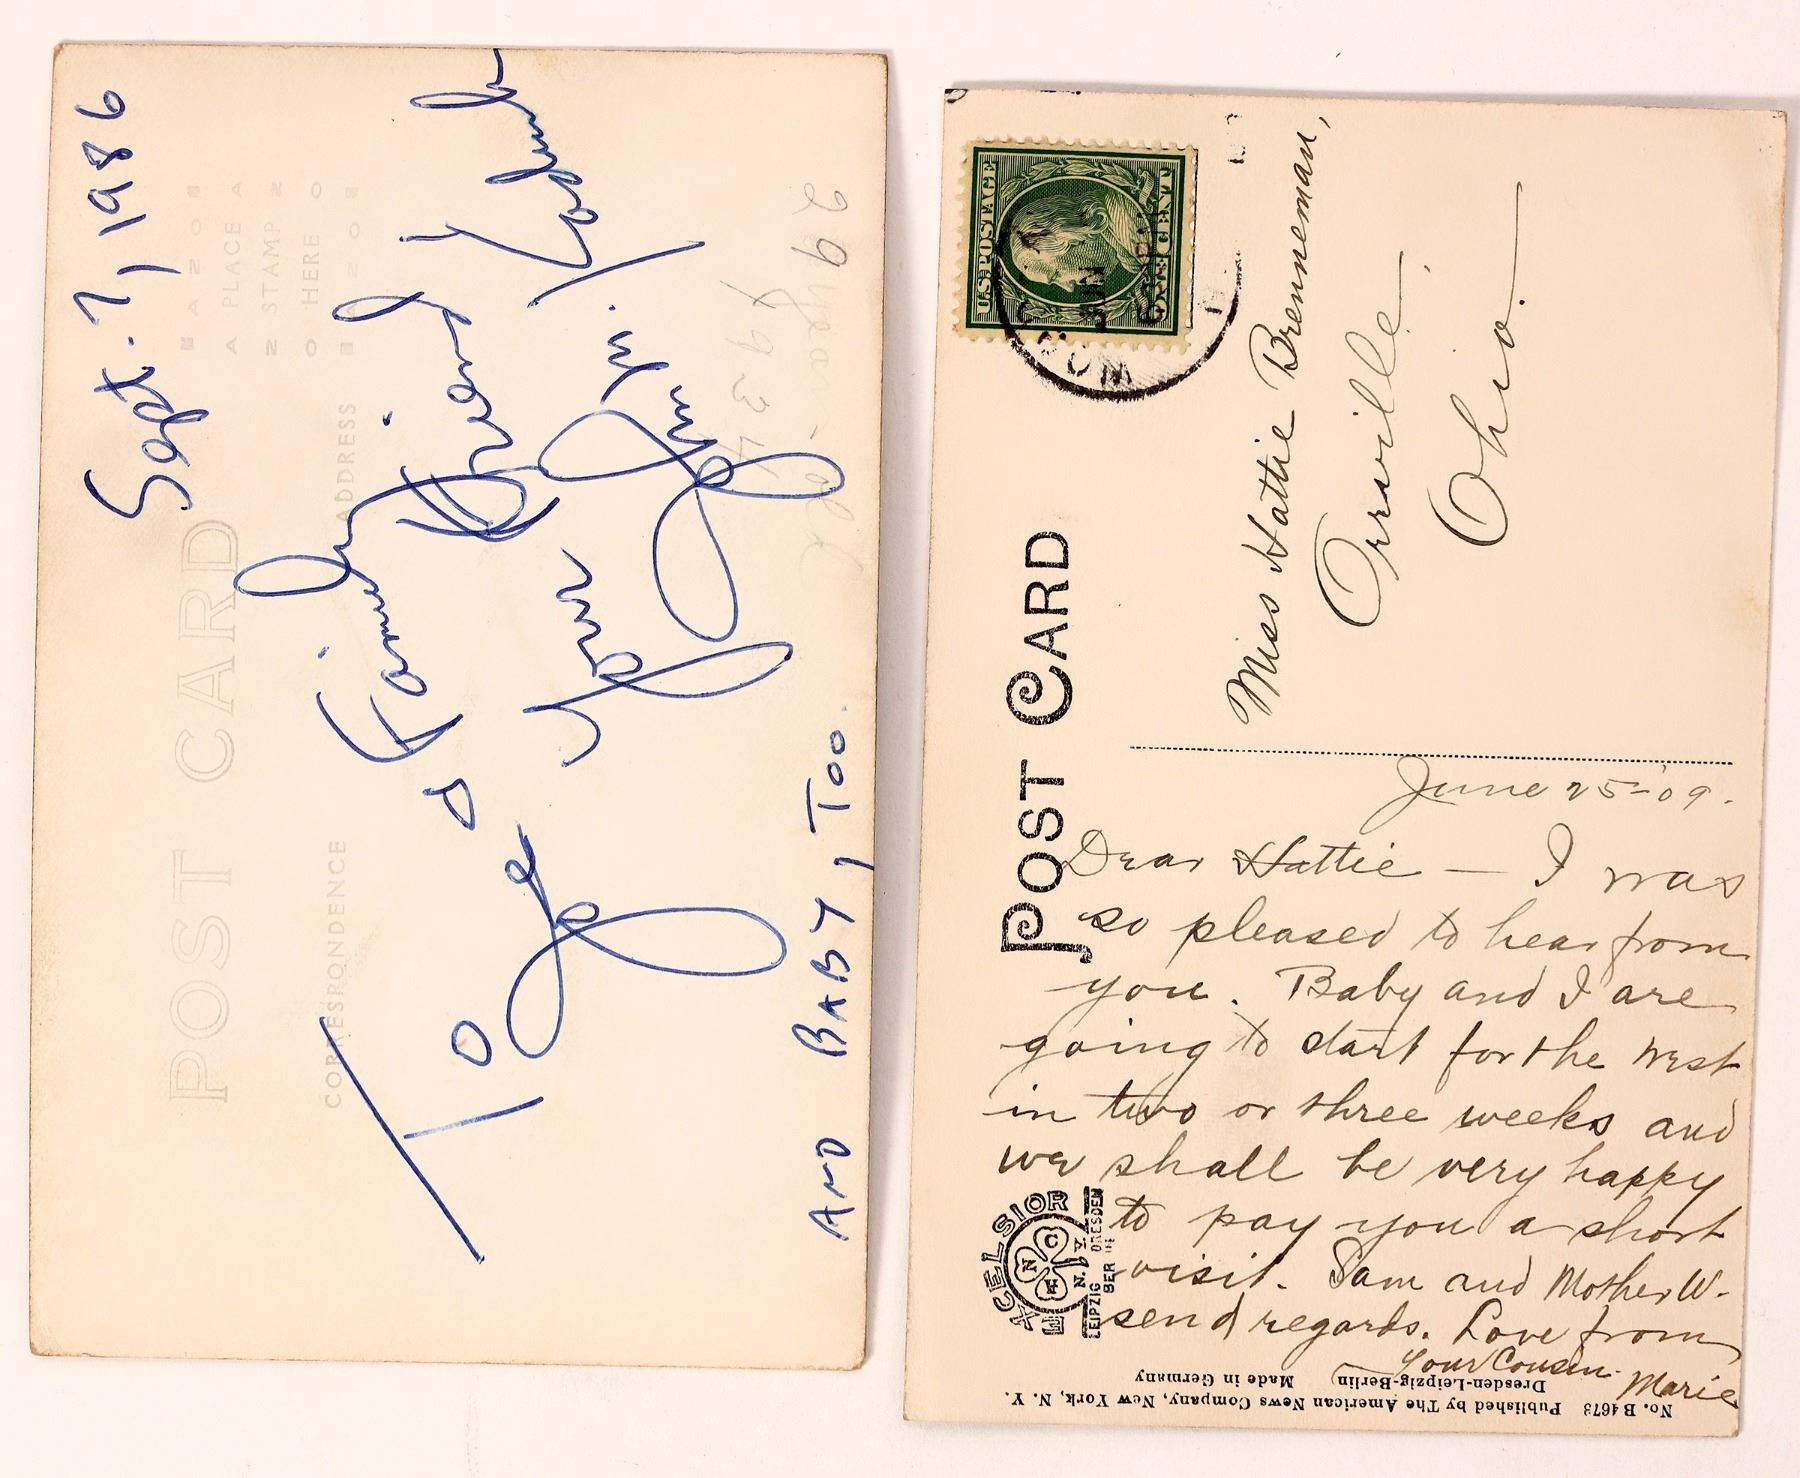 POST CARD
CORRESPONDENCE
ADDRESS
PLACE
STAMP
HERE
Sept. 7, 1986
To Joe & Family
Your Friend,
Jim
AND BABY, TOO.
29 year-old
1934
POST CARD
U.S. POSTAGE
ONE CENT
JUN
Miss Hattie Brenneman,
Orrville
Ohio.
June 25-'09.
Dear Hattie — I was
so pleased to hear from
you. Baby and I are
going to start for the west
in two or three weeks and
we shall be very happy
to pay you a short
visit. Sam and Mother W.
send regards. Love from
Your Cousin
Marie
EXCELSIOR
N. Y.
LEIPZIG DRESDEN
BERLIN
No. B 4673 Published by The American News Company, New York, N. Y.
Dresden-Leipzig-Berlin Made in Germany